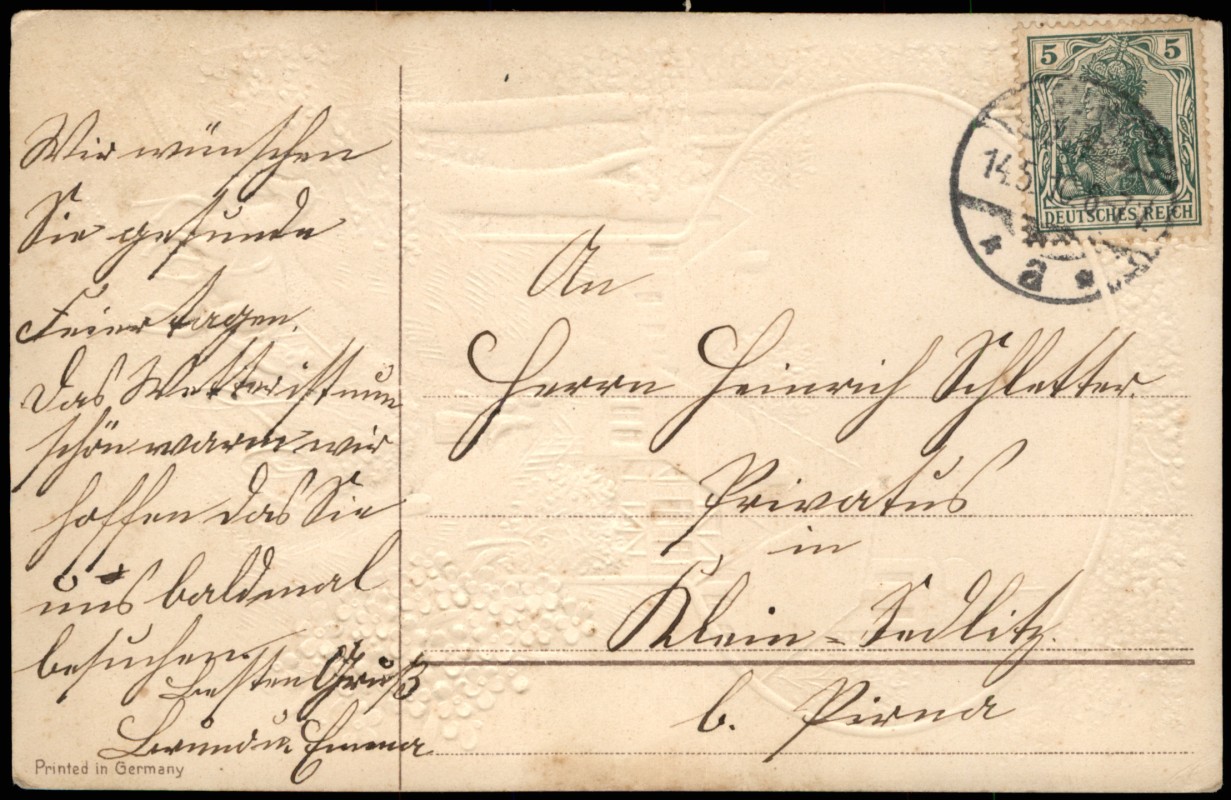 Wir wünschen
Sie gesunde
Feiertagen.
Das Wetter ist nun
schön warm wir
hoffen das Sie
uns bald mal
besuchen.
besten Gruß
u. Emma
Printed in Germany
5 5
DEUTSCHES REICH
14.5.
a
An
Herrn Heinrich Schletter.
Privatus
in
Klein-Sedlitz.
b. Pirna